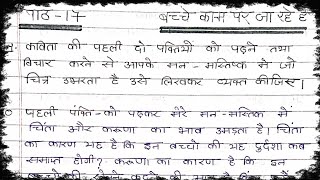 पाठ-17 बच्चे काम पर जा रहे हैं
कविता की पहली दो पंक्तियों को पढ़ने तथा
विचार करने से आपके मन-मस्तिष्क में जो
चित्र उभरता है उसे लिखकर व्यक्त कीजिए।
पहली पंक्ति-को पढ़कर मेरे मन-मस्तिक में
चिंता और करूणा का भाव उमड़ता है। चिंता
का कारण यह है कि इन बच्चों की यह दुर्दशा कब
समाप्त होगी? करूणा का कारण है कि इन